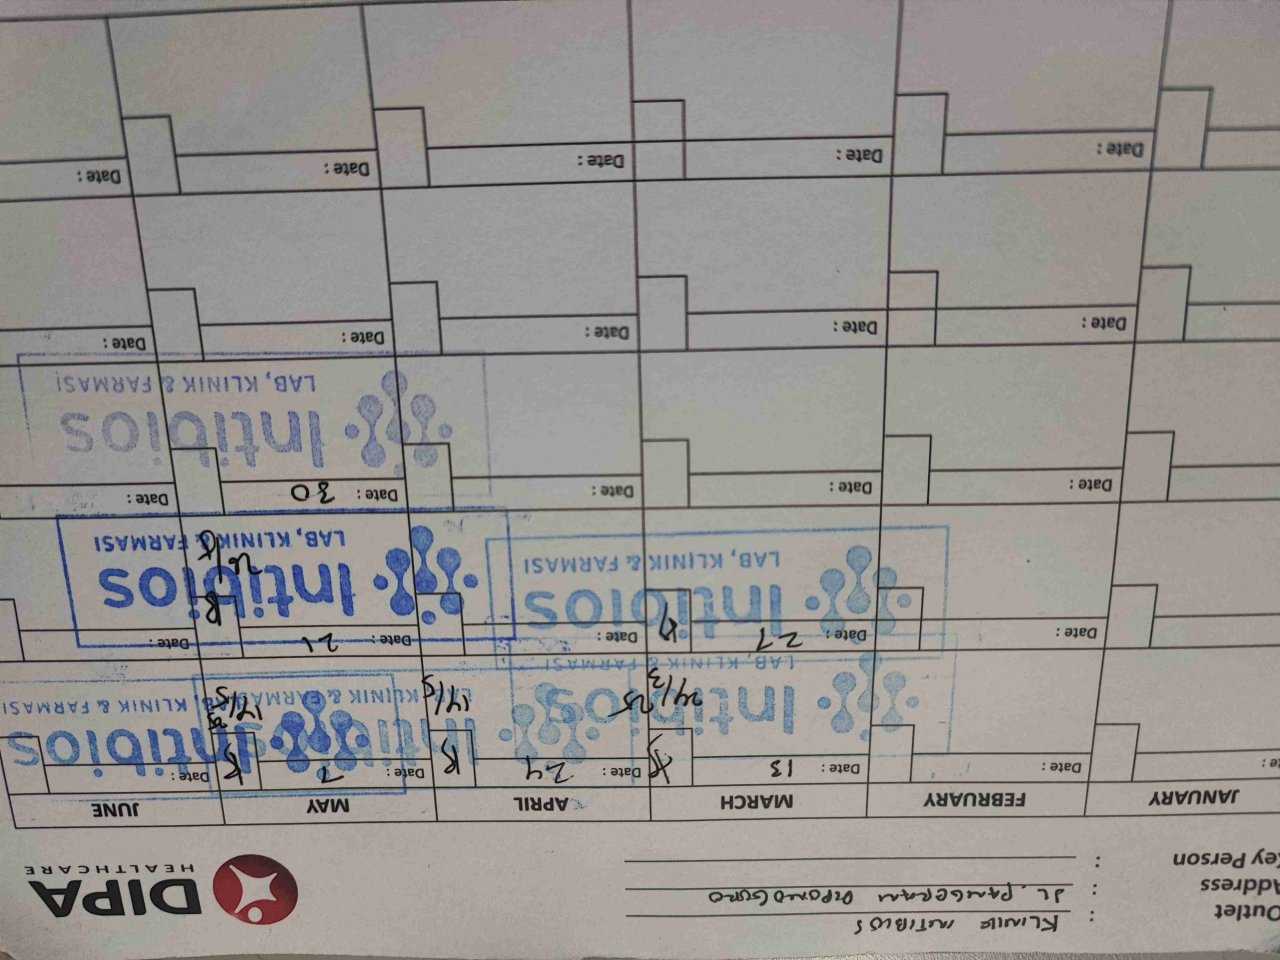 Outlet : KLINIK INTIBIOS
Address : JL. PANGERAN DIPONOGORO
Key Person :
DIPA
HEALTHCARE
JANUARY FEBRUARY MARCH APRIL MAY JUNE
Date : Date : 13 Date : 24 Date : 7 Date :
24/3 25 14/5 14/5
Intibios
LAB, KLINIK & FARMASI
Intibios
LAB, KLINIK & FARMASI
Intibios
LAB, KLINIK & FARMASI
Date : Date : 27 Date : Date : 21 Date :
Intibios
LAB, KLINIK & FARMASI
Intibios
LAB, KLINIK & FARMASI
26/5
Date : Date : Date : Date : 30 Date :
Intibios
LAB, KLINIK & FARMASI
Date : Date : Date : Date : Date :
Date : Date : Date : Date : Date :